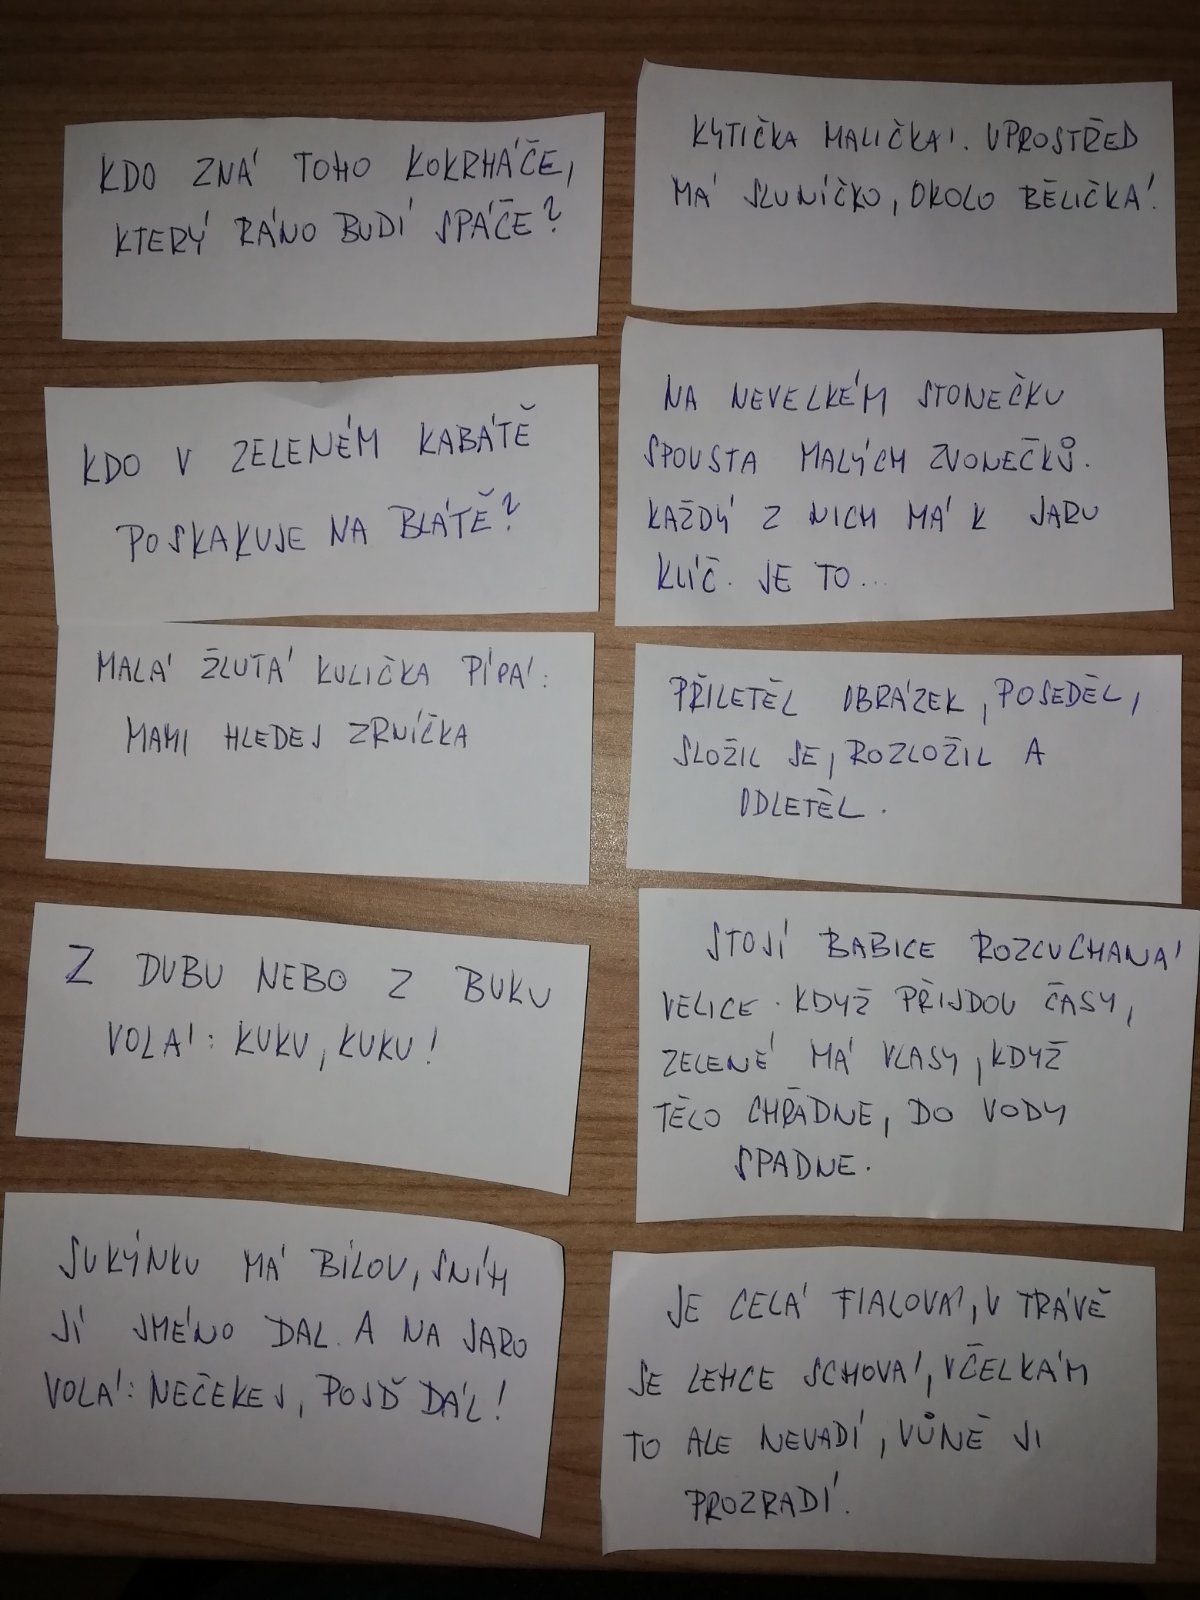 KDO ZNÁ TOHO KOKRHÁČE,
KTERÝ RÁNO BUDÍ SPÁČE?
KDO V ZELENÉM KABÁTĚ
POSKAKUJE NA BLÁTĚ?
MALÁ ŽLUTÁ KULIČKA PÍPÁ:
MAMI HLEDEJ ZRNÍČKA
Z DUBU NEBO Z BUKU
VOLÁ: KUKU, KUKU!
SUKÝNKU MÁ BÍLOU, SNÍH
JÍ JMÉNO DAL. A NA JARO
VOLÁ: NEČEKEJ, POJĎ DÁL!
KYTIČKA MALIČKÁ. UPROSTŘED
MÁ SLUNÍČKO, OKOLO BĚLIČKÁ!
NA NEVELKÉM STONEČKU
SPOUSTA MALÝCH ZVONEČKŮ.
KAŽDÝ Z NICH MÁ K JARU
KLÍČ. JE TO...
PŘILETĚL OBRÁZEK, POSEDĚL,
SLOŽIL SE, ROZLOŽIL A
ODLETĚL.
STOJÍ BABICE ROZCUCHANÁ
VELICE. KDYŽ PŘIJDOU ČASY,
ZELENÉ MÁ VLASY, KDYŽ
TĚLO CHŘADNE, DO VODY
SPADNE.
JE CELÁ FIALOVÁ, V TRÁVĚ
SE LEHCE SCHOVÁ, VČELKÁM
TO ALE NEVADÍ, VŮNĚ JI
PROZRADÍ.